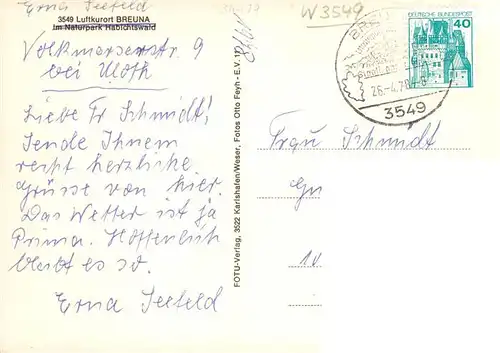 Erna Seefeld
3549 Luftkurort BREUNA
Im Naturpark Habichtswald
Volkmarserstr. 9
bei Wolh
Liebe Fr Schmidt!
Sende Ihnem
recht herzliche
Grüsse von hier.
Das Wetter ist ja
Prima. Hoffentlich
bleibt es so.
Erna Seefeld
FOTU-Verlag, 3522 Karlshafen/Weser, Fotos Otto Feyh - E.V.
W3549
DEUTSCHE BUNDESPOST
40
26.-4.78
3549
Frau Schmidt